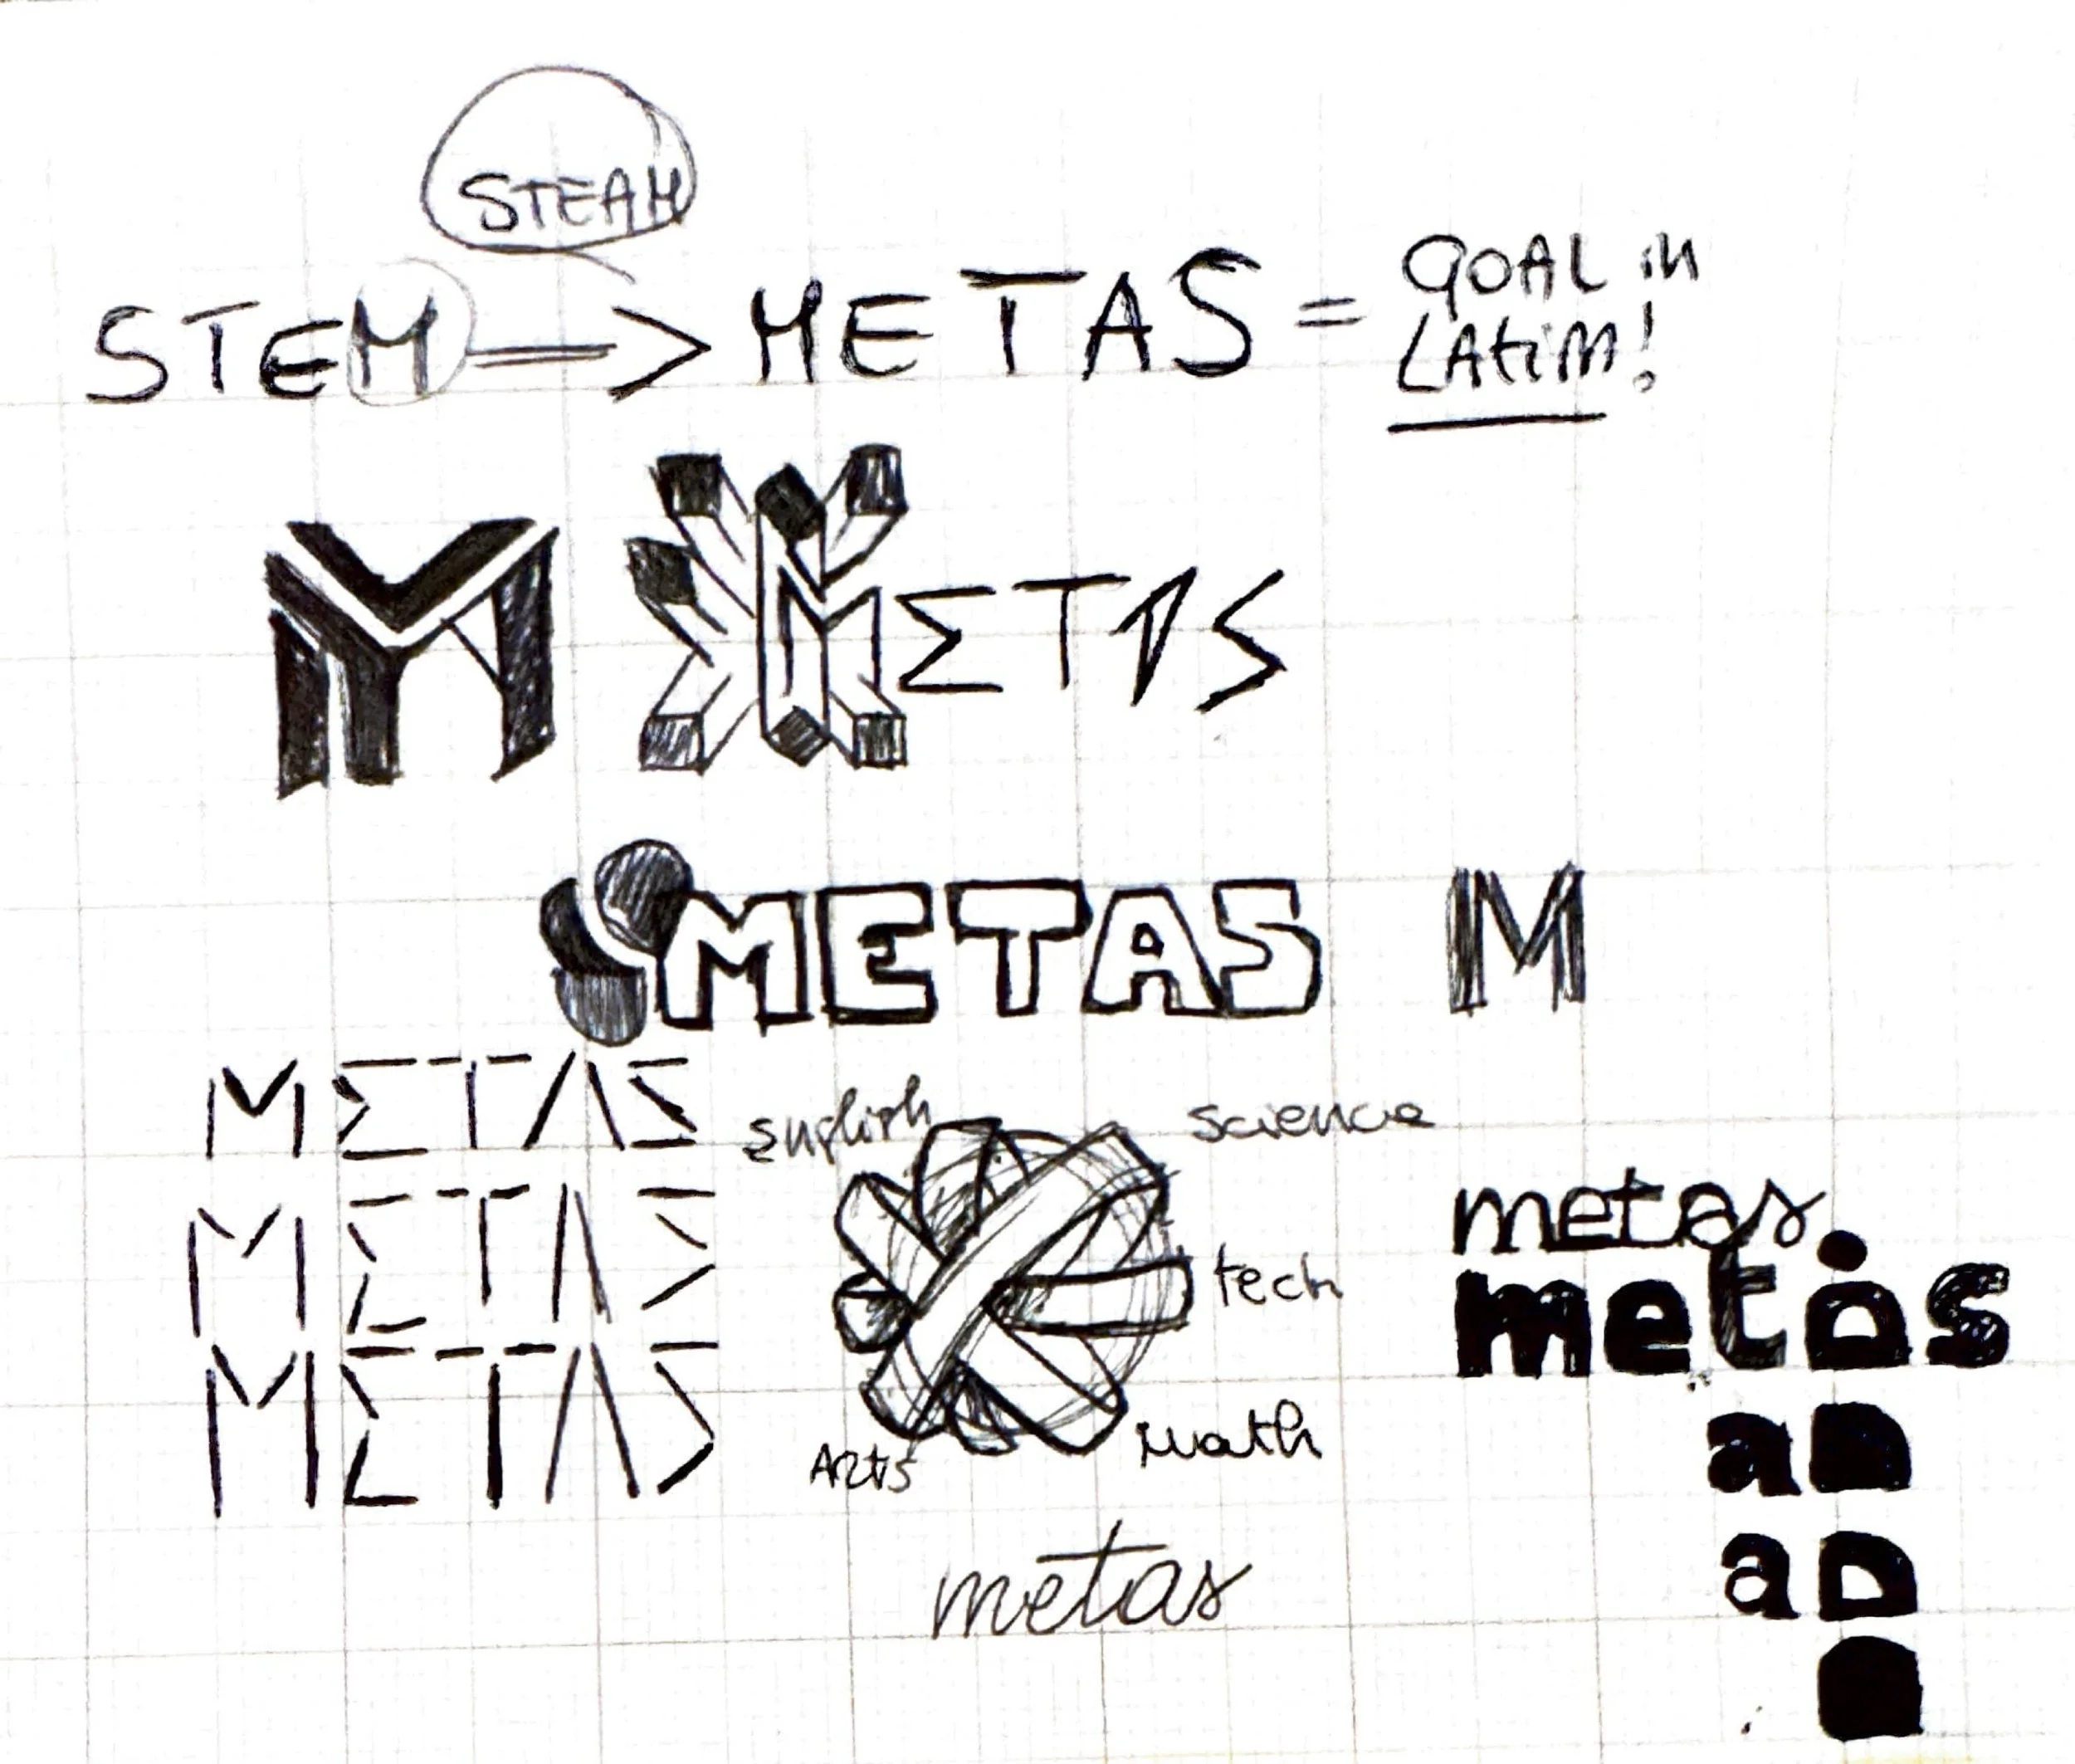 STEAM
STEM => METAS = GOAL in LAtiM!
M METAS
METAS M
METAS
english science
METAS
tech
metas
metas
METAS
Arts math
a a
metas
a a